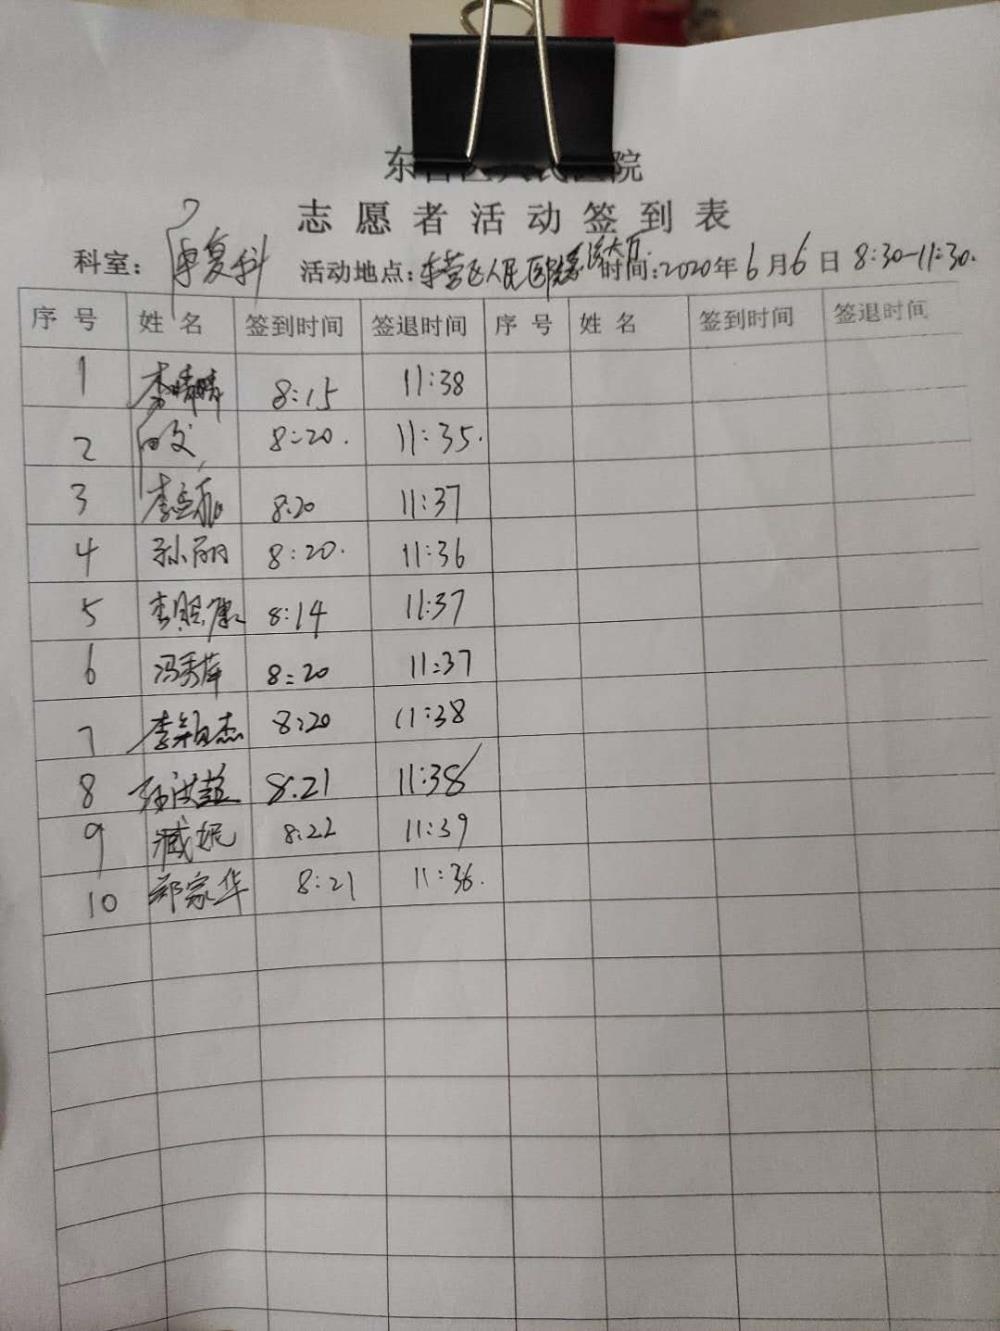 东营区人民医院
志愿者活动签到表
科室: 康复科 活动地点: 东营区人民医院 时间: 2020年6月6日 8:30-11:30.
序号 姓名 签到时间 签退时间 序号 姓名 签到时间 签退时间
1 李晴晴 8:15 11:38
2 8:20. 11:35.
3 8:20 11:37
4 孙丽 8:20. 11:36
5 李照康 8:14 11:37
6 冯秀萍 8:20 11:37
7 李颖杰 8:20 11:38
8 8:21 11:38
9 臧妮 8:22 11:39
10 郑家华 8:21 11:36.